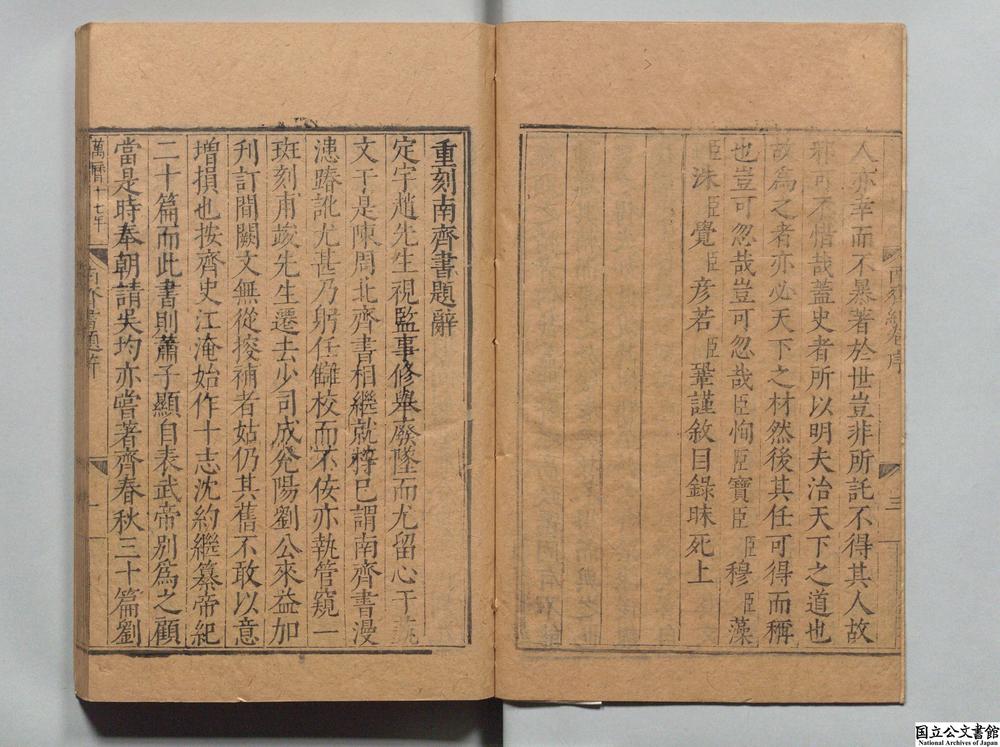 人亦幸而不暴著於世豈非所託不得其人故
邪可不惜哉蓋史者所以明夫治天下之道也
故為之者亦必天下之材然後其任可得而稱
也豈可忽哉豈可忽哉臣恂臣寶臣臣穆臣藻
臣洙臣覺臣彦若臣鞏謹敘目錄昧死上
三
重刻南齊書題辭
定宇趙先生視監事修舉廢墜而尤留心于
文于是陳周北齊書相繼就梓已謂南齊書漫
漶踳訛尤甚乃躬任讎校而不佞亦執管窺一
斑刻甫竣先生遷去少司成兖陽劉公來益加
刊訂間闕文無從挍補者姑仍其舊不敢以意
增損也按齊史江淹始作十志沈約繼纂帝紀
二十篇而此書則蕭子顯自表武帝別為之顧
當是時奉朝請吴均亦嘗著齊春秋三十篇劉
萬曆十七年
南齊書題辭
一
国立公文書館
National Archives of Japan